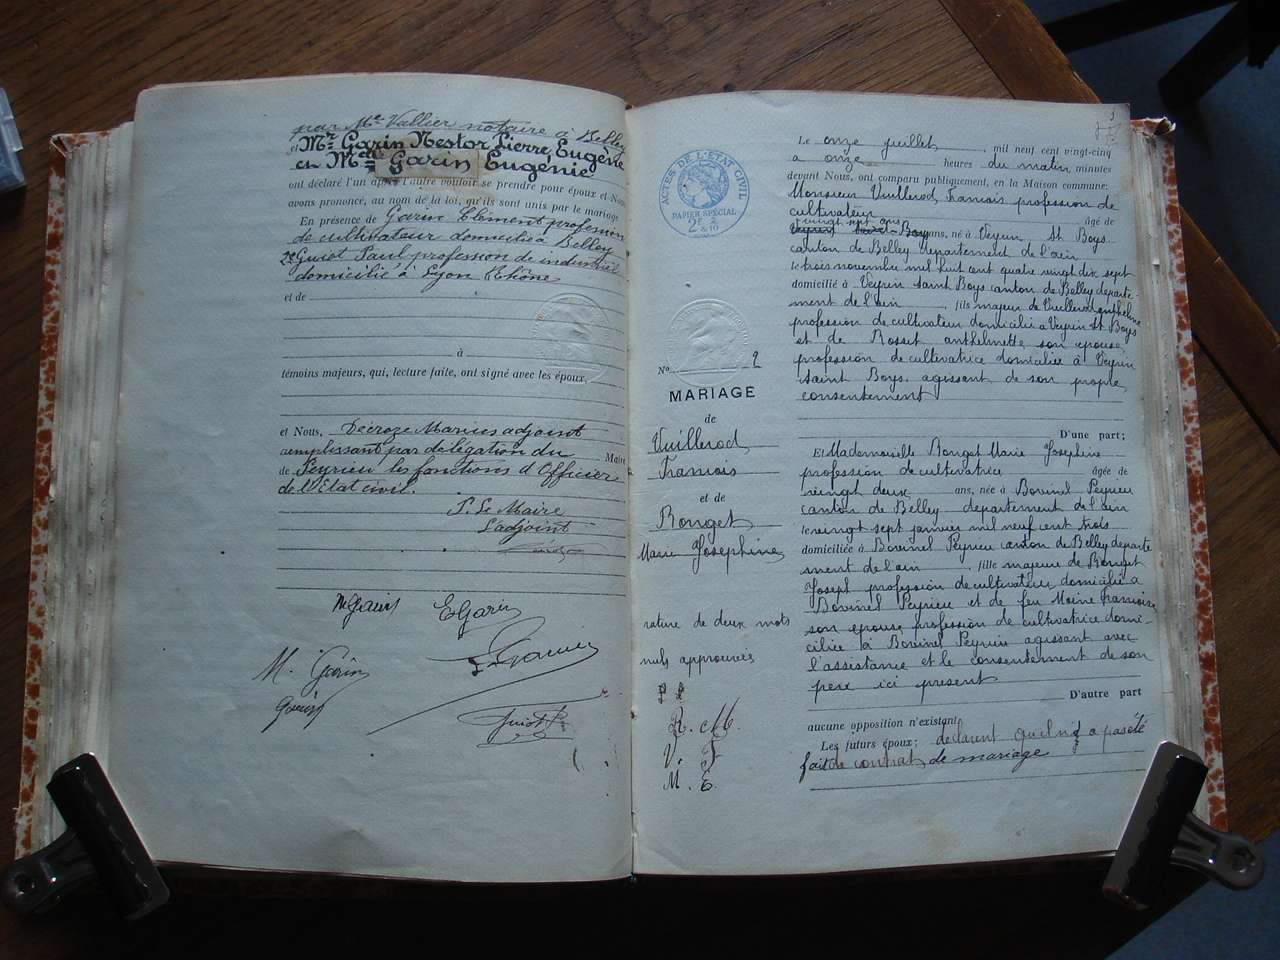 par Me Vallier notaire à Belley
et Mr Garin Nestor Pierre Eugène
et Melle Garin Eugénie
ont déclaré l'un après l'autre vouloir se prendre pour époux et Nous
avons prononcé, au nom de la loi, qu'ils sont unis par le mariage
En présence de Garin Clément profession
de cultivateur domicilié à Belley
2e Guiot Paul profession de industriel
domicilié à Lyon Rhône
et de
à
témoins majeurs, qui, lecture faite, ont signé avec les époux,
et Nous, Decroze Marius adjoint
remplissant par délégation du Maire
de Peyrieu les fonctions d'Officier
de l'Etat civil.
P. Le Maire
L'adjoint
N Garin E Garin
M. Garin
Guiot P.
ACTES DE L'ÉTAT CIVIL
PAPIER SPÉCIAL
2F &
No 2
MARIAGE
de
Vuillerod
Francois
et de
Ronget
Marie Josephine
rature de deux mots
nuls approuvés
R. M
V. F
M. E.
Le onze juillet, mil neuf cent vingt-cinq
à onze heures du matin, minutes
devant Nous, ont comparu publiquement, en la Maison commune:
Monsieur Vuillerod Francois profession de
cultivateur âgé de
vingt sept ans, né à Veyrin St Boys
canton de Belley departement de l'ain
le trois novembre mil huit cent quatre vingt dix sept
domicilié à Veyrin Saint Boys canton de Belley departe-
ment de l'ain, fils majeur de Vuillerod anthelme
profession de cultivateur domicilié a Veyrin St Boys
et de Rosset anthelmette son epouse
profession de cultivatrice domiciliée à Veyrin
Saint Boys. agissant de son propre
consentement
D'une part;
Et Mademoiselle Ronget Marie Josephine
profession de cultivatrice âgée de
vingt deux ans, née à Bovinel Peyrieu
canton de Belley departement de l'ain
le vingt sept janvier mil neuf cent trois
domiciliée à Bovinel Peyrieu canton de Belley departe
ment de l'ain, fille majeure de Ronget
Joseph profession de cultivateur domicilié a
Bovinel Peyrieu et de feu Moine francoise
son epouse profession de cultivatrice domi-
ciliée à Bovinel Peyrieu agissant avec
l'assistance et le consentement de son
père ici present
D'autre part
aucune opposition n'existant
Les futurs époux; déclarent qu'il n'a pas été
fait de contrat de mariage